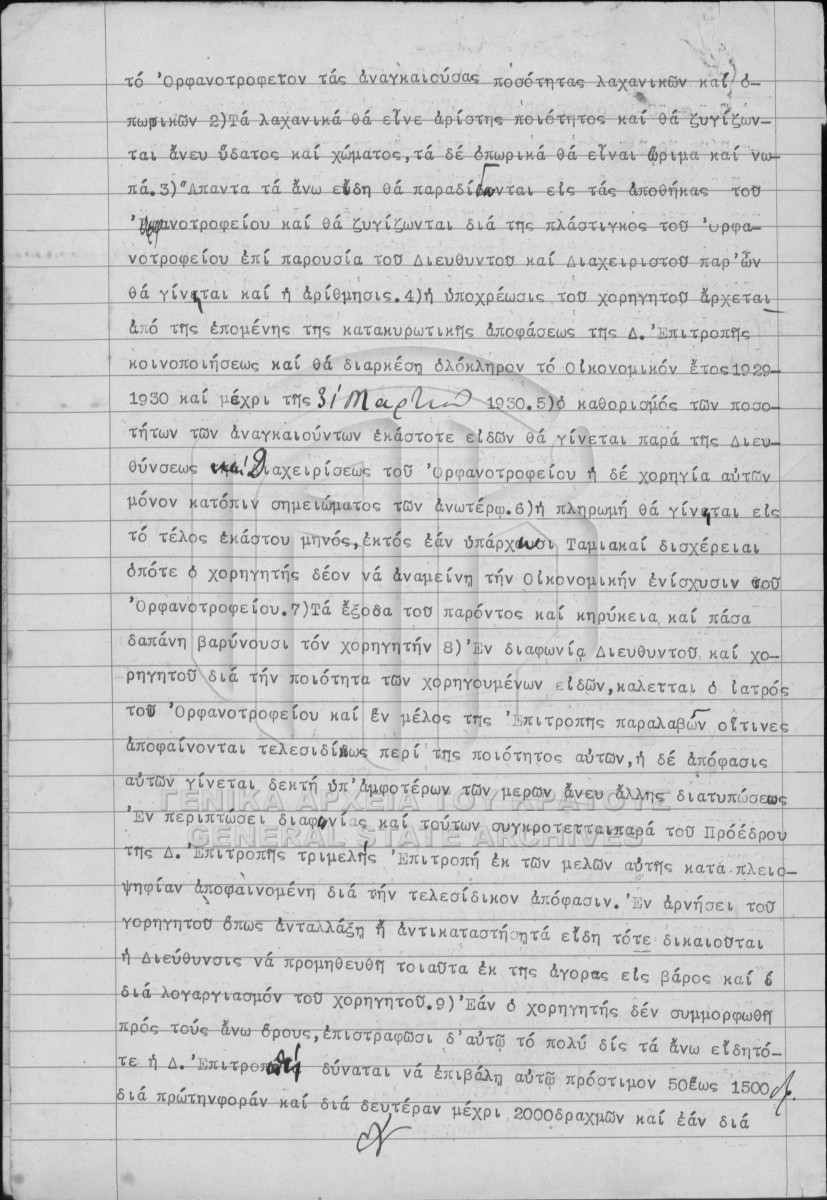 τό Ὀρφανοτροφετον τάς ἀναγκαιούσας ποσότητας λαχανικῶν καί ὀ-
πωρικῶν 2)Τά λαχανικά θά εἶνε ἀρίστης ποιότητος καί θά ζυγίζων-
ται ἄνευ ὕδατος καί χώματος,τά δέ ὀπωρικά θά εἶναι ὥριμα καί νω-
πά.3)Ἅπαντα τά ἄνω εἴδη θά παραδίδωνται εἰς τάς ἀποθήκας τοῦ
Ὀρφανοτροφείου καί θά ζυγίζωνται διά τῆς πλάστιγκος τοῦ Ὀρφα-
νοτροφείου ἐπί παρουσία τοῦ Διευθυντοῦ καί Διαχειριστοῦ παρ'ὧν
θά γίνηται καί ἡ ἀρίθμησις.4)ἡ ὑποχρέωσις τοῦ χορηγητοῦ ἄρχεται
ἀπό τῆς ἐπομένης τῆς κατακυρωτικῆς ἀποφάσεως τῆς Δ.Ἐπιτροπῆς
κοινοποιήσεως καί θά διαρκέση ὁλόκληρον τό Οἰκονομικόν ἔτος1929-
1930 καί μέχρι τῆς 31 Μαρτίου 1930.5)ὁ καθορισμός τῶν ποσο-
τήτων τῶν ἀναγκαιούντων ἑκάστοτε εἰδῶν θά γίνεται παρά τῆς Διευ-
θύνσεως καί Διαχειρίσεως τοῦ Ὀρφανοτροφείου ἡ δέ χορηγία αὐτῶν
μόνον κατόπιν σημειώματος τῶν ἀνωτέρῳ.6)ἡ πληρωμή θά γίνηται εἰς
τό τέλος ἑκάστου μηνός,ἐκτός ἐάν ὑπάρχωσι Ταμιακαί δισχέρειαι
ὁπότε ὁ χορηγητής δέον νά ἀναμείνη τήν Οἰκονομικήν ἐνίσχυσιν τοῦ
Ὀρφανοτροφείου.7)Τά ἔξοδα τοῦ παρόντος καί κηρύκεια καί πᾶσα
δαπάνη βαρύνουσι τόν χορηγητήν 8)Ἐν διαφωνίᾳ Διευθυντοῦ καί χο-
ρηγητοῦ διά τήν ποιότητα τῶν χορηγουμένων εἰδῶν,καλεται ὁ ἰατρός
τοῦ Ὀρφανοτροφείου καί ἕν μέλος τῆς Ἐπιτροπῆς παραλαβῶν οἵτινες
ἀποφαίνονται τελεσιδίκως περί τῆς ποιότητος αὐτῶν,ἡ δέ ἀπόφασις
αὐτῶν γίνεται δεκτή ὑπ'ἀμφοτέρων τῶν μερῶν ἄνευ ἄλλης διατυπώσεως
Ἐν περιπτώσει διαφωνίας καί τούτων συγκροτετταιπαρά τοῦ Προέδρου
τῆς Δ.Ἐπιτροπῆς τριμελής Ἐπιτροπή ἐκ τῶν μελῶν αὐτῆς κατά πλειο-
ψηφίαν ἀποφαινομένη διά τήν τελεσίδικον ἀπόφασιν.Ἐν ἀρνήσει τοῦ
γορηγητοῦ ὅπως ἀνταλλάξη ἤ ἀντικαταστήσητά εἴδη τότε δικαιοῦται
ἡ Διεύθυνσις νά προμηθευθῆ τοιαῦτα ἐκ τῆς ἀγορᾶς εἰς βάρος καί
διά λογαργιασμόν τοῦ χορηγητοῦ.9)Ἐάν ὁ χορηγητής δέν συμμορφωθῆ
πρός τούς ἄνω ὅρους,ἐπιστραφῶσι δ'αὐτῷ τό πολύ δίς τά ἄνω εἴδητό-
τε ἡ Δ.Ἐπιτροπή δύναται νά ἐπιβάλη αὐτῷ πρόστιμον 50ἕως 1500 δρ.
διά πρώτηνφοράν καί διά δευτέραν μέχρι 2000δραχμῶν καί ἐάν διά
ΓΕΝΙΚΑ ΑΡΧΕΙΑ ΤΟΥ ΚΡΑΤΟΥΣ
GENERAL STATE ARCHIVES